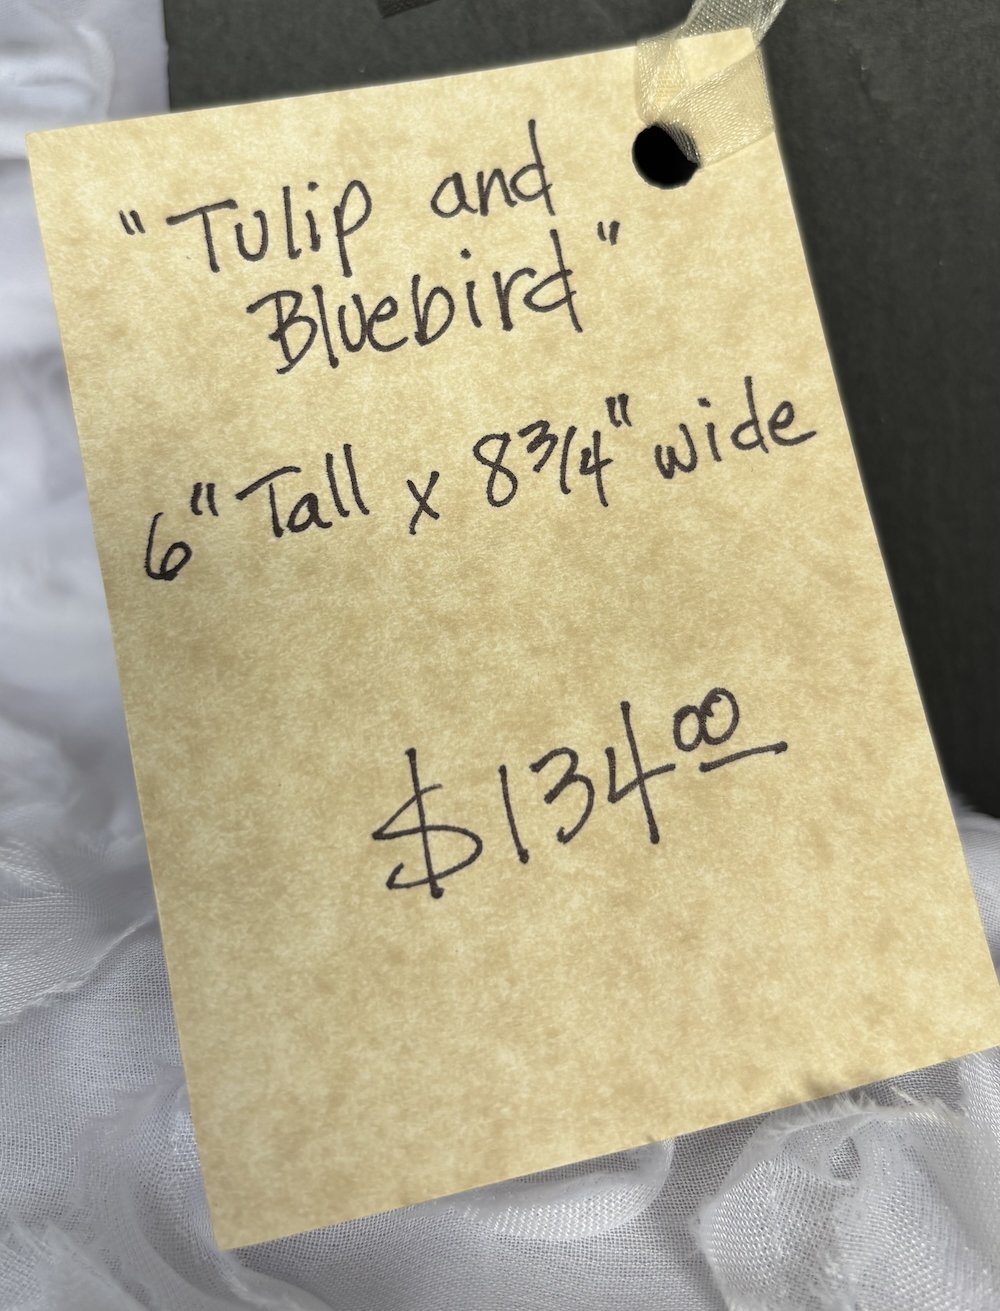 "Tulip and
Bluebird"
6" Tall x 8 3/4" wide
$134.00